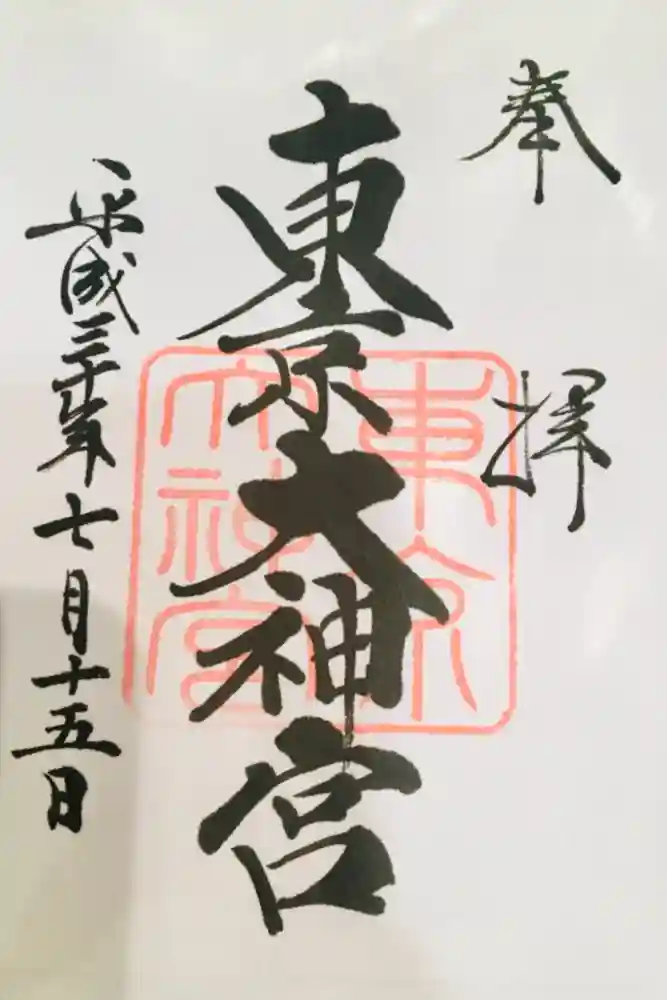 奉拝
東京大神宮
東京
大神宮
平成三十年七月十五日